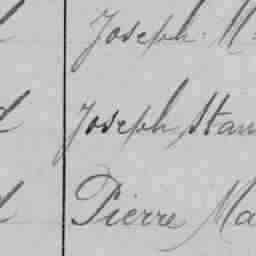 Joseph M
Joseph Stan
Pierre Ma